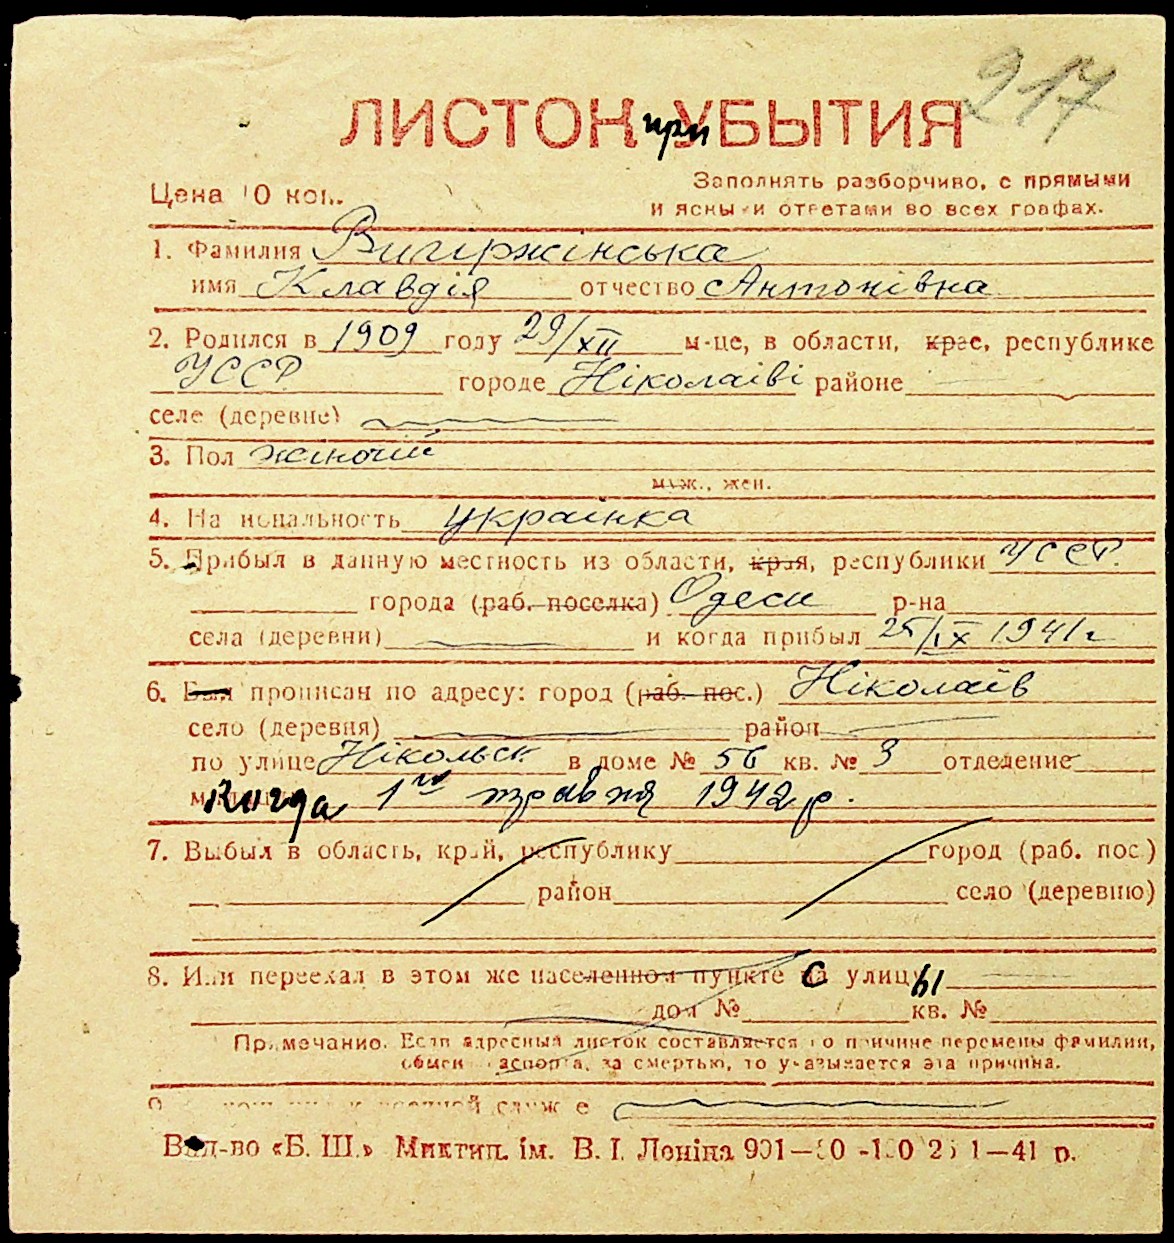 217
ЛИСТОК при УБЫТИЯ
Цена 10 коп.
Заполнять разборчиво, с прямыми
и ясными ответами во всех графах.
1. Фамилия Вигіржінська
имя Клавдія отчество Антонівна
2. Родился в 1909 году 29/XII м-це, в области, крае, республике
УССР городе Ніколаіві районе
селе (деревне)
3. Пол жіночій
муж., жен.
4. Национальность українка
5. Прибыл в данную местность из области, края, республики УССР.
города (раб. поселка) Одеси р-на
села (деревни) и когда прибыл 25/IX 1941 г
6. Был прописан по адресу: город (раб. пос.) Ніколаїв
село (деревня) район
по улице Нікольск. в доме № 56 кв. № 3 отделение
когда 1го травня 1942 р.
7. Выбыл в область, край, республику город (раб. пос.)
район село (деревню)
8. Или переехал в этом же населенном пункте с улицы
дом № кв. №
Примечание. Если адресный листок составляется по причине перемены фамилии,
обмен паспорта, за смертью, то указывается эта причина.
Вид-во «Б. Ш.» Миктип. ім. В. І. Леніна 901— 1—41 р.